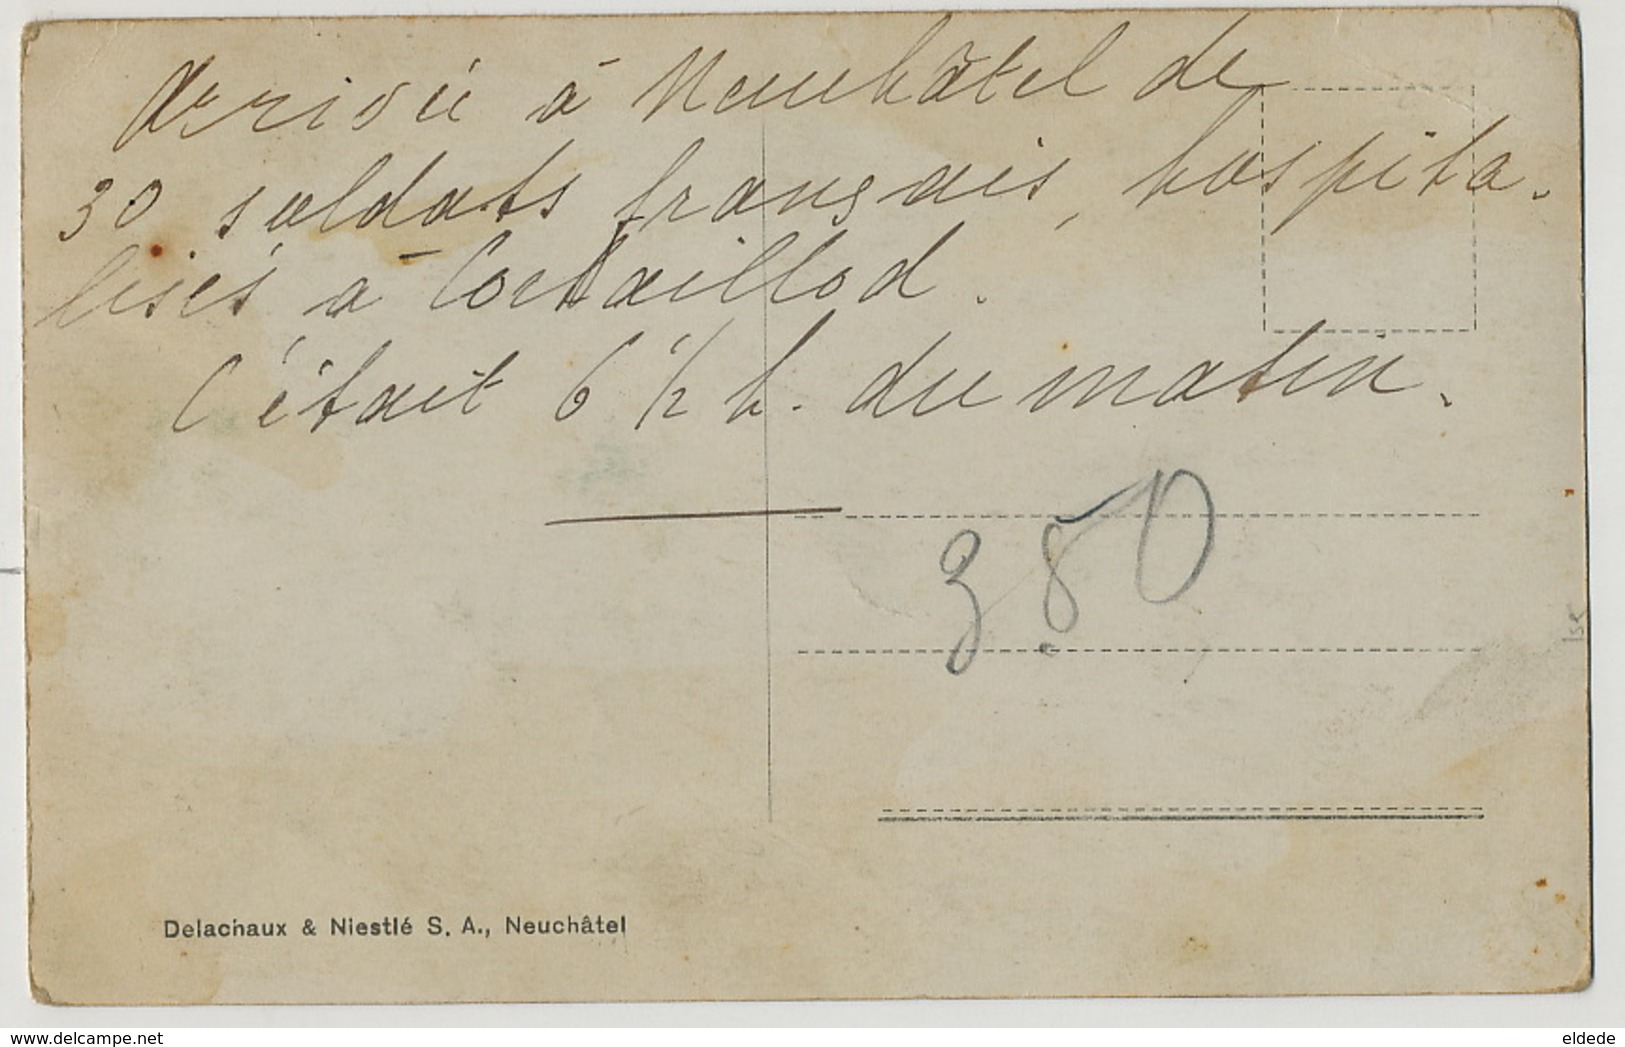 Arrivée à Neuchâtel de
30 soldats français, hospita-
lisés à Cortaillod.
C'était 6 1/2 h. du matin.
380
Delachaux & Niestlé S. A., Neuchâtel
www.delcampe.net
eldede